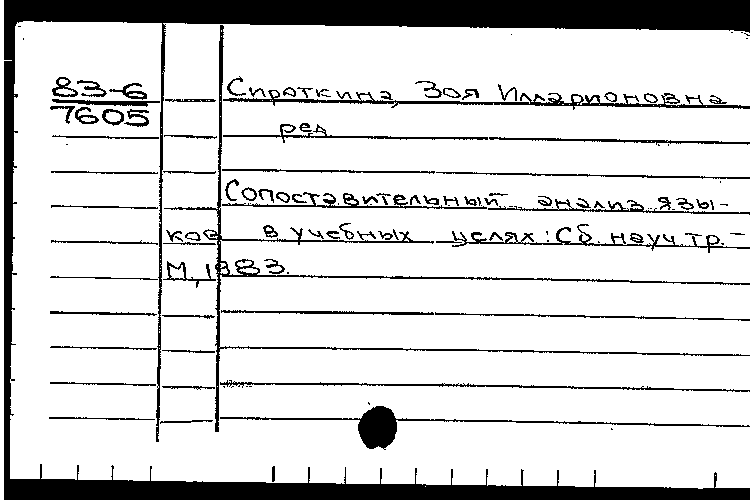 83-6
7605
Сироткина, Зоя Илларионовна
ред.
Сопоставительный анализ язы-
ков в учебных целях: Сб. науч. тр. -
М., 1983.